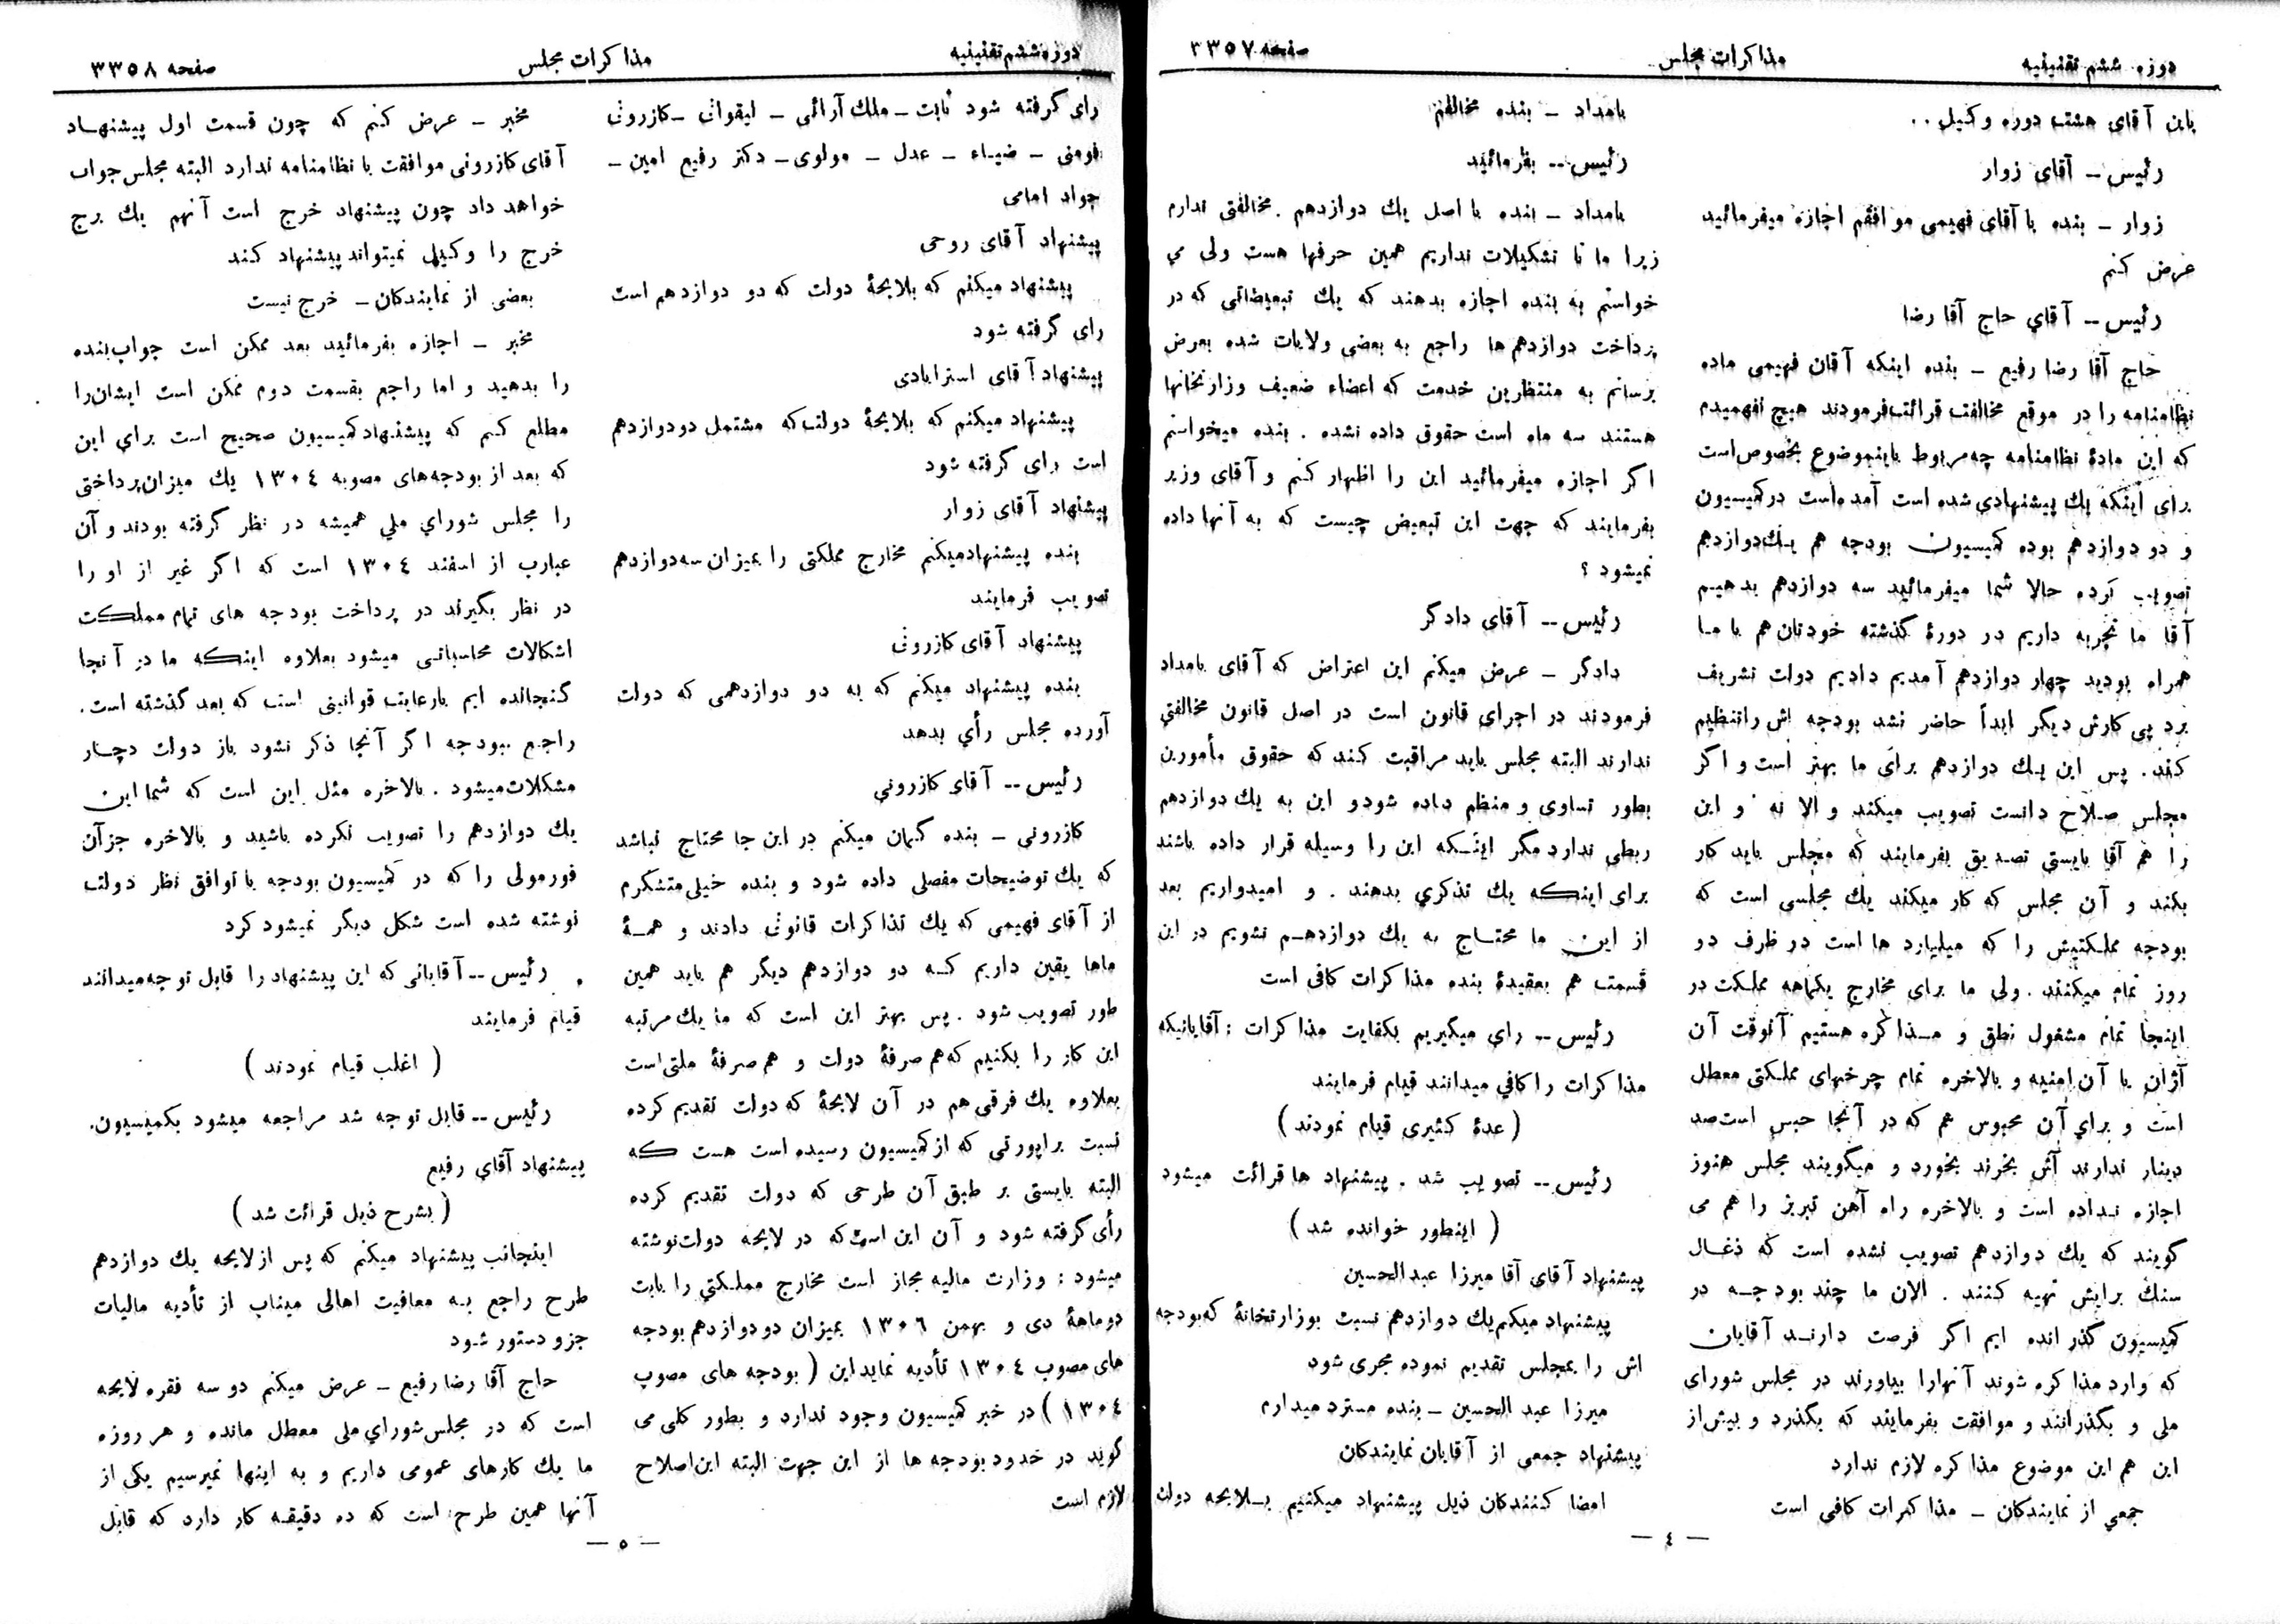 دوره ششم تقنینیه
مذاکرات مجلس
صفحه ۳۳۵۷
باین آقای هشت دوره وکیل . .
رئیس -- آقای زوار
زوار - بنده با آقای فهیمی موافقم اجازه میفرمائید
عرض کنم
رئیس -- آقاي حاج آقا رضا
حاج آقا رضا رفیع - بنده اینکه آقای فهیمی ماده
نظامنامه را در موقع مخالفت قرائت فرمودند هیچ نفهمیدم
که این مادۀ نظامنامه چه مربوط باینموضوع بخصوص است
برای اینکه یك پیشنهادی شده است آمده است در کمیسیون
و دو دوازدهم بوده کمیسیون بودجه هم یك دوازدهم
تصویب کرده حالا شما میفرمائید سه دوازدهم بدهیم
آقا ما تجربه داریم در دورۀ گذشته خودتان هم با ما
همراه بودید چهار دوازدهم آمدیم دادیم دولت تشریف
برد پی کارش دیگر ابداً حاضر نشد بودجه اش را تنظیم
کند . پس این یك دوازدهم برای ما بهتر است و اگر
مجلس صلاح دانست تصویب میکند و الا نه و این
را هم آقا بایستی تصدیق بفرمایند که مجلس باید کار
بکند و آن مجلس که کار میکند یك مجلسی است که
بودجه مملکتیش را که میلیارد ها است در ظرف دو
روز تمام میکنند . ولی ما برای مخارج یکماهه مملکت در
اینجا تمام مشغول نطق و مذاکره هستیم آنوقت آن
آژان یا آن امنیه و بالاخره تمام چرخهای مملکتی معطل
است و براي آن محبوس هم که در آنجا حبس است صد
دینار ندارند آش بخرند بخورد و میگویند مجلس هنوز
اجازه نداده است و بالاخره راه آهن تبریز را هم می
گویند که یك دوازدهم تصویب نشده است که ذغال
سنگ برایش تهیه کنند . الان ما چند بودجه در
کمیسیون گذرانده ایم اگر فرصت دارند آقایان
که وارد مذاکره شوند آنهارا بیاورند در مجلس شورای
ملی و بگذرانند و موافقت بفرمایند که بگذرد و بیش از
این هم این موضوع مذاکره لازم ندارد
جمعي از نمایندکان - مذاکرات کافی است
بامداد - بنده مخالفم
رئیس -- بفرمائید
بامداد - بنده با اصل یك دوازدهم . مخالفتی ندارم
زیرا ما تا تشکیلات نداریم همین حرفها هست ولی مي
خواستم به بنده اجازه بدهند که یك تبعیضاتی که در
پرداخت دوازدهم ها راجع به بعضی ولایات شده بعرض
برسانم به منتظرین خدمت که اعضاء ضعیف وزارتخانها
هستند سه ماه است حقوق داده نشده . بنده میخواستم
اگر اجازه میفرمائید این را اظهار کنم و آقای وزیر
بفرمایند که جهت این تبعیض چیست که به آنها داده
نمیشود ؟
رئیس -- آقای دادگر
دادگر - عرض میکنم این اعتراض که آقای بامداد
فرمودند در اجرای قانون است در اصل قانون مخالفتي
ندارند البته مجلس باید مراقبت کند که حقوق مأمورین
بطور تساوی و منظم داده شود و این به یك دوازدهم
ربطي ندارد مگر اینکه این را وسیله قرار داده باشند
برای اینکه یك تذکري بدهند . و امیدواریم بعد
از این ما محتاج به یك دوازدهم نشویم در این
قسمت هم بعقیدۀ بنده مذاکرات کافی است
رئیس -- رای میگیریم بکفایت مذاکرات : آقایانیکه
مذاکرات را کافي میدانند قیام فرمایند
( عدۀ کثیری قیام نمودند )
رئیس -- تصویب شد . پیشنهاد ها قرائت میشود
( اینطور خوانده شد )
پیشنهاد آقای آقا میرزا عبدالحسین
پیشنهاد میکنم یك دوازدهم نسبت بوزارتخانۀ که بودجه
اش را بمجلس تقدیم نموده مجری شود
میرزا عبد الحسین - بنده مسترد میدارم
پیشنهاد جمعی از آقایان نمایندکان
امضا کنندکان ذیل پیشنهاد میکنیم بلایحه دولت
- ٤ -
دوره ششم تقنینیه
مذاکرات مجلس
صفحه ۳۳۵۸
رای گرفته شود ثابت - ملك آرائی - لیقوانی - کازرونی
فومنی - ضیاء - عدل - مولوی - دکتر رفیع امین -
جواد امامی
پیشنهاد آقای روحی
پیشنهاد میکنم که بلایحۀ دولت که دو دوازدهم است
رای گرفته شود
پیشنهاد آقای استرابادی
پیشنهاد میکنم که بلایحۀ دولت که مشتمل دو دوازدهم
است رای گرفته شود
پیشنهاد آقای زوار
بنده پیشنهاد میکنم مخارج مملکتی را بمیزان سه دوازدهم
تصویب فرمایند
پیشنهاد آقای کازرونی
بنده پیشنهاد میکنم که به دو دوازدهمی که دولت
آورده مجلس رأي بدهد
رئیس -- آقای کازروني
کازرونی - بنده گمان میکنم در این جا محتاج نباشد
که یك توضیحات مفصلی داده شود و بنده خیلی متشکرم
از آقای فهیمی که یك تذاکرات قانونی دادند و همۀ
ماها یقین داریم که دو دوازدهم دیگر هم باید همین
طور تصویب شود . پس بهتر این است که ما یك مرتبه
این کار را بکنیم که هم صرفۀ دولت و هم صرفۀ ملتی است
بعلاوه یك فرقی هم در آن لایحۀ که دولت تقدیم کرده
نسبت براپورتی که از کمیسیون رسیده است هست که
البته بایستی بر طبق آن طرحی که دولت تقدیم کرده
رأی گرفته شود و آن این است که در لایحه دولت نوشته
میشود : وزارت مالیه مجاز است مخارج مملکتي را بابت
دوماهۀ دی و بهمن ۱۳۰٦ بمیزان دو دوازدهم بودجه
های مصوب ۱۳۰٤ تأدیه نماید این ( بودجه های مصوب
۱۳۰٤ ) در خبر کمیسیون وجود ندارد و بطور کلی می
گوید در حدود بودجه ها از این جهت البته این اصلاح
لازم است
مخبر - عرض کنم که چون قسمت اول پیشنهاد
آقای کازرونی موافقت با نظامنامه ندارد البته مجلس جواب
خواهد داد چون پیشنهاد خرج است آنهم یك برج
خرج را وکیلی نمیتواند پیشنهاد کند
بعضی از نمایندکان - خرج نیست
مخبر - اجازه بفرمائید بعد ممکن است جواب بنده
را بدهید و اما راجع بقسمت دوم ممکن است ایشان را
مطلع کنم که پیشنهاد کمیسیون صحیح است براي این
که بعد از بودجه‌های مصوبه ۱۳۰٤ یك میزان پرداختی
را مجلس شوراي ملي همیشه در نظر گرفته بودند و آن
عبارب از اسفند ۱۳۰٤ است که اگر غیر از او را
در نظر بگیرند در پرداخت بودجه های تمام مملکت
اشکالات محاسباتی میشود بعلاوه اینکه ما در آنجا
گنجانده ایم بارعایت قوانینی است که بعد گذشته است .
راجع ببودجه اگر آنجا ذکر نشود باز دولت دچار
مشکلات میشود . بالاخره مثل این است که شما این
یك دوازدهم را تصویب نکرده باشید و بالاخره جز آن
فورمولی را که در کمیسیون بودجه با توافق نظر دولت
نوشته شده است شکل دیگر نمیشود کرد
رئیس -- آقایانی که این پیشنهاد را قابل توجه میدانند
قیام فرمایند
( اغلب قیام نمودند )
رئیس -- قابل توجه شد مراجعه میشود بکمیسیون .
پیشنهاد آقاي رفیع
( بشرح ذیل قرائت شد )
اینجانب پیشنهاد میکنم که پس از لایحه یك دوازدهم
طرح راجع به معافیت اهالی میناب از تأدیه مالیات
جزو دستور شود
حاج آقا رضا رفیع - عرض میکنم دو سه فقره لایحه
است که در مجلس شوراي ملی معطل مانده و هر روزه
ما یك کارهای عمومی داریم و به اینها نمیرسیم یکی از
آنها همین طرح است که ده دقیقه کار دارد که قابل
- ٥ -